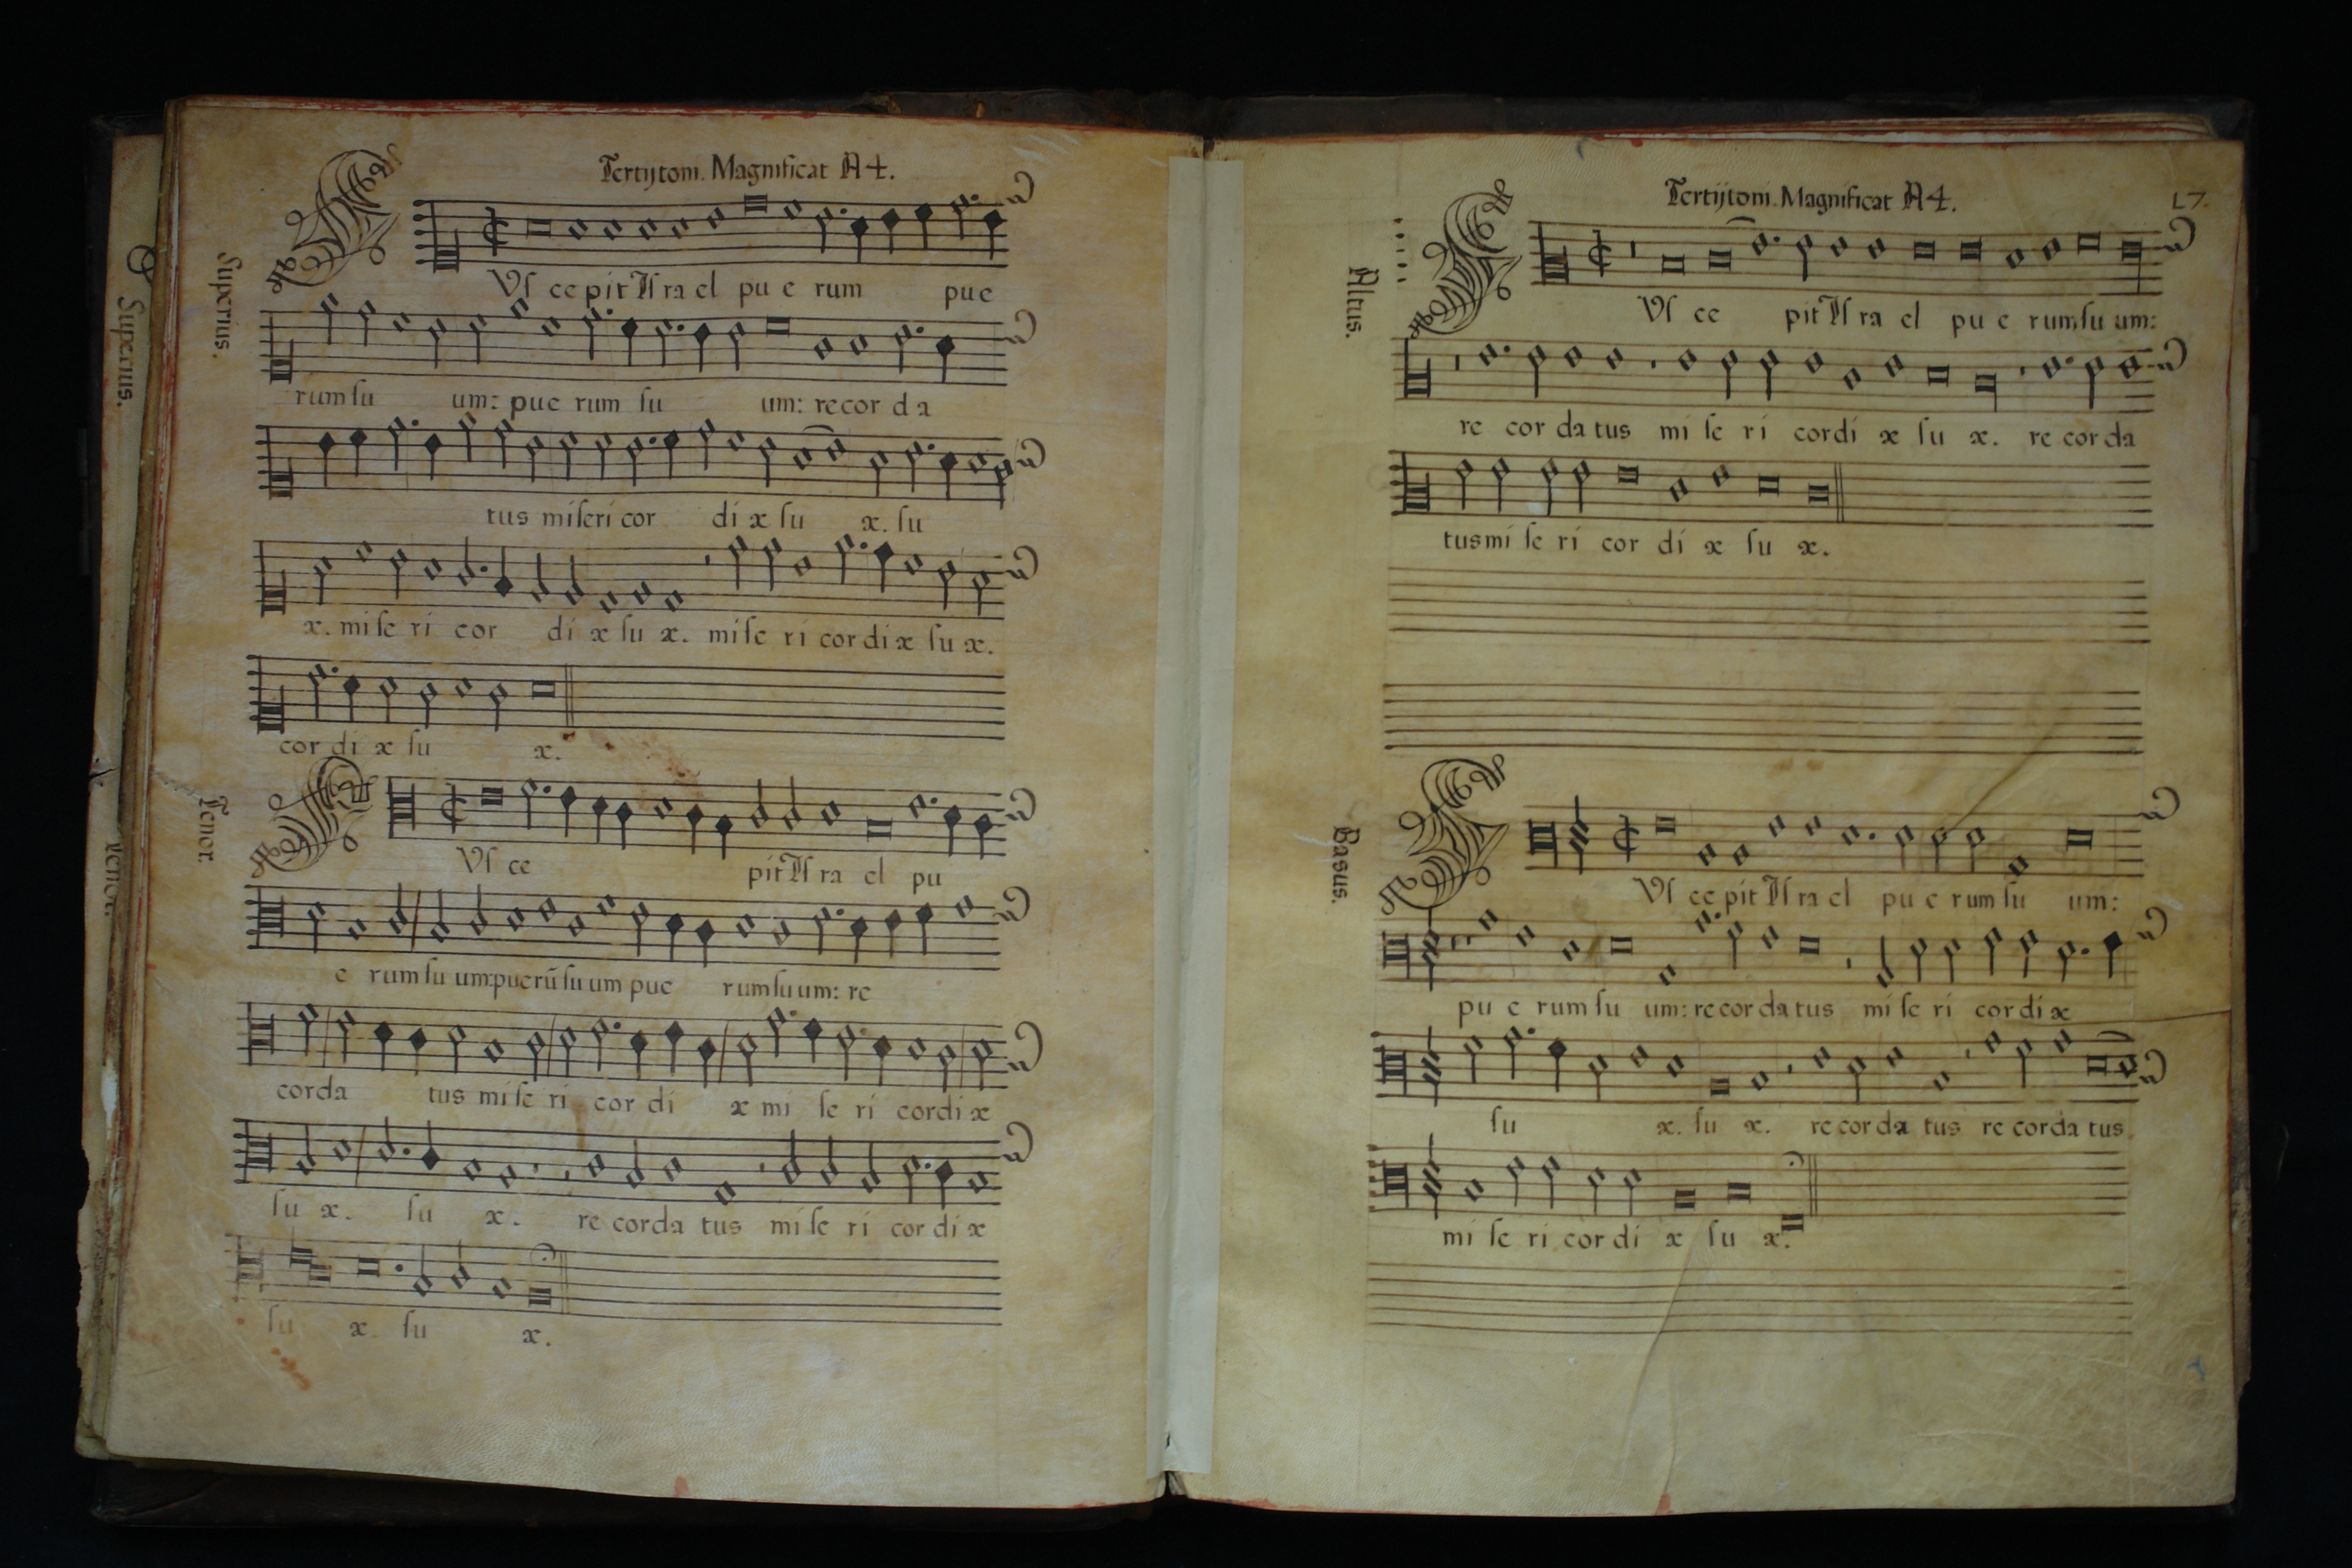 Tertij toni. Magnificat A 4.
Superius.
Uſ ce pit Iſ ra el pu e rum pue
rum ſu um: pue rum ſu um: re cor d a
tus miſeri cor di æ ſu æ. ſu
æ. mi ſe ri cor di æ ſu æ. miſe ri cor di æ ſu æ.
cor di æ ſu æ.
Tenor.
Uſ ce pit Iſ ra el pu
e rum ſu um: puerū ſu um pue rum ſu um: re
corda tus mi ſe ri cor di æ mi ſe ri cordi æ
ſu æ. ſu æ. re corda tus mi ſe ri cor di æ
ſu æ. ſu æ.
Superius.
Tenor.
Tertij toni. Magnificat A 4.
17.
Altus.
Uſ ce pit Iſ ra el pu e rum ſu um:
re cor da tus mi ſe ri cordi æ ſu æ. re cor da
tus mi ſe ri cor di æ ſu æ.
Basus.
Uſ ce pit Iſ ra el pu e rum ſu um:
pu e rum ſu um: re cor da tus mi ſe ri cor di æ
ſu æ. ſu æ. re cor da tus re corda tus
mi ſe ri cor di æ ſu æ.